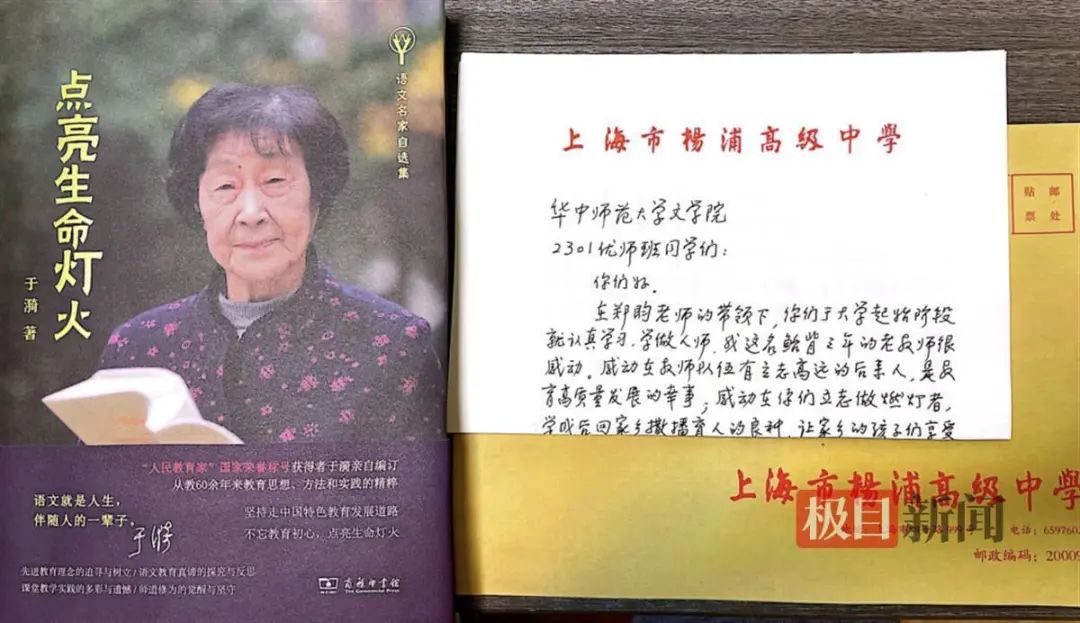 语文名家自选集
点亮生命灯火
于漪 著
“人民教育家”国家荣誉称号获得者于漪亲自编订
从教60余年来教育思想、方法和实践的精粹
语文就是人生，
伴随人的一辈子。
于漪
坚持走中国特色教育发展道路
不忘教育初心，点亮生命灯火
先进教育理念的追寻与树立/语文教育真谛的探究与反思
课堂教学实践的多彩与遗憾/师道修为的觉醒与坚守
商务印书馆
The Commercial Press
上海市楊浦高級中學
华中师范大学文学院
2301优师班同学们：
你们好。
在郑昀老师的带领下，你们于大学起始阶段
就认真学习，学做人师，我这名鲐背三年的老教师很
感动。感动在教师队伍有立志高远的后来人，是教
育高质量发展的幸事；感动在你们立志做燃灯者，
学成后回家乡撒播育人的良种，让家乡的孩子们享受
贴邮
票处
上海市楊浦高級中學
999
电话：659760
邮政编码：20009
极目新闻